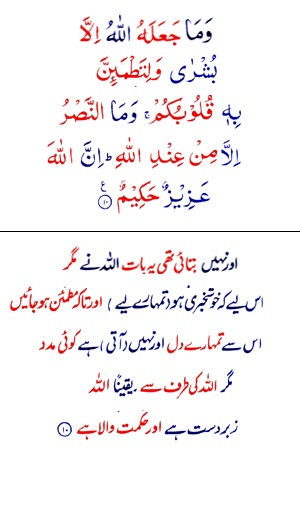 وَمَا جَعَلَهُ اللّٰهُ اِلَّا
بُشْرٰى وَلِتَطْمَئِنَّ
بِهٖ قُلُوْبُكُمْ ۚ وَمَا النَّصْرُ
اِلَّا مِنْ عِنْدِ اللّٰهِ ؕ اِنَّ اللّٰهَ
عَزِيْزٌ حَكِيْمٌ ۧ ﴿۱۰﴾
اور نہیں بتائی تھی یہ بات اللہ نے مگر
اس لیے کہ خوشخبری ہو (تمہارے لیے) اور تاکہ مطمئن ہو جائیں
اس سے تمہارے دل اور نہیں (آتی) ہے کوئی مدد
مگر اللہ کی طرف سے یقیناً اللہ
زبردست ہے اور حکمت والا ہے ﴿۱۰﴾